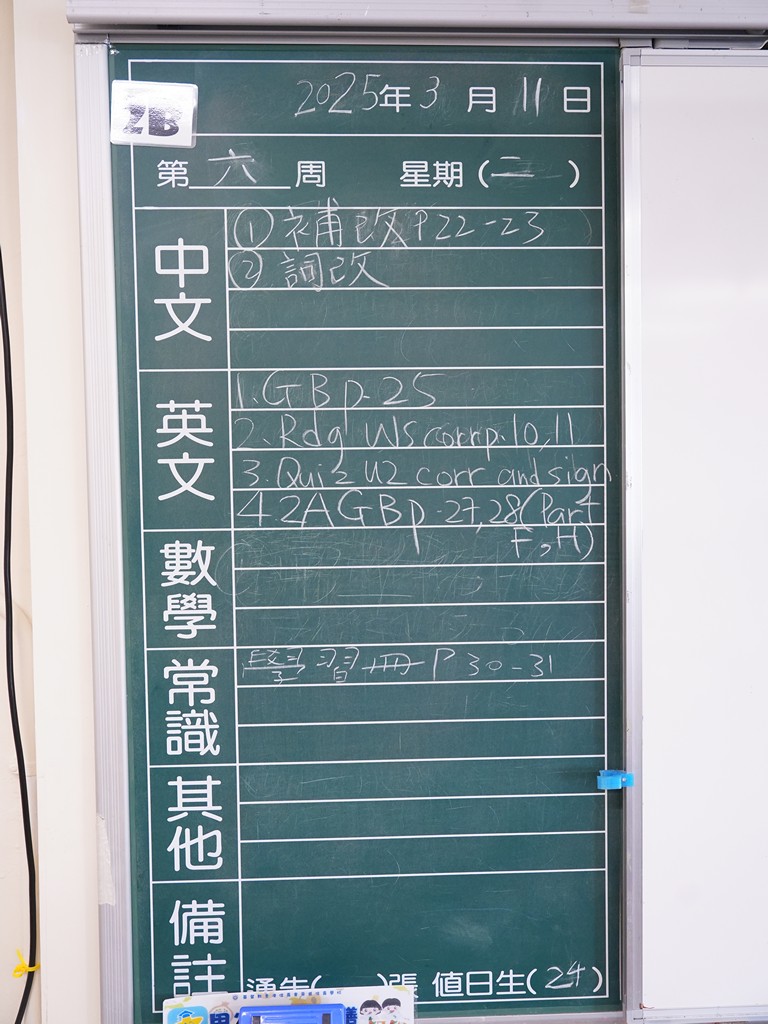 2B
2025年3月11日
第六周 星期(二)
中文
① 補改 P22-23
② 詞改
英文
1. GB p.25
2. Rdg WS corr p.10,11
3. Quiz U2 corr and sign
4. 2A GB p.27,28 (Part
F,H)
數學
常識
學習冊 P 30-31
其他
備註
通告( )張 值日生(24)